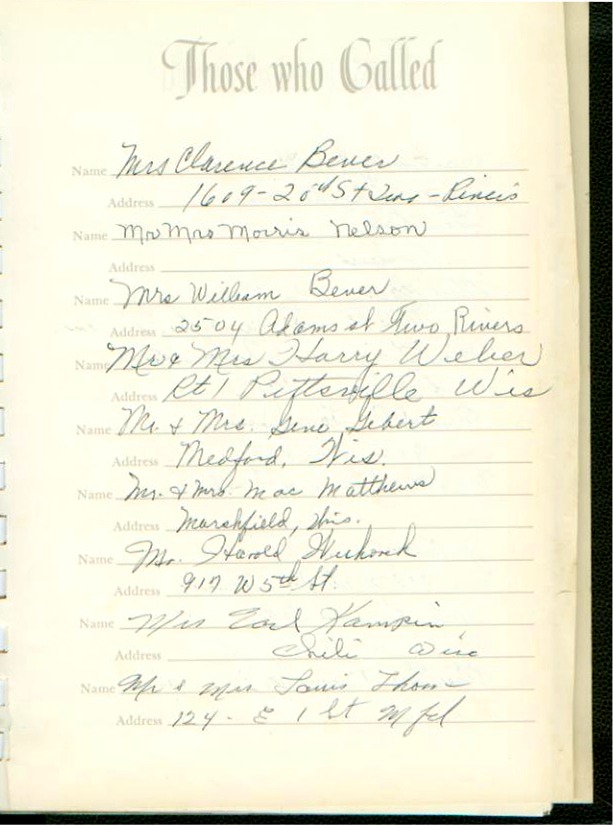 Those who Called
Name Mrs Clarence Bever
Address 1609-20th St Two-Rivers
Name Mr Mrs Morris Nelson
Address
Name Mrs William Bever
Address 2504 Adams st Two Rivers
Name Mr & Mrs Harry Weber
Address Rt 1 Pittsville Wis
Name Mr. & Mrs. Gene Gebert
Address Medford, Wis.
Name Mr. & Mrs. Mac Matthews
Address Marshfield, Wis.
Name Harold
Address 917 W 5th St.
Name Mrs Earl
Address Chili Wisc
Name Mr & Mrs Louis
Address 124 - E 1 St Mfd